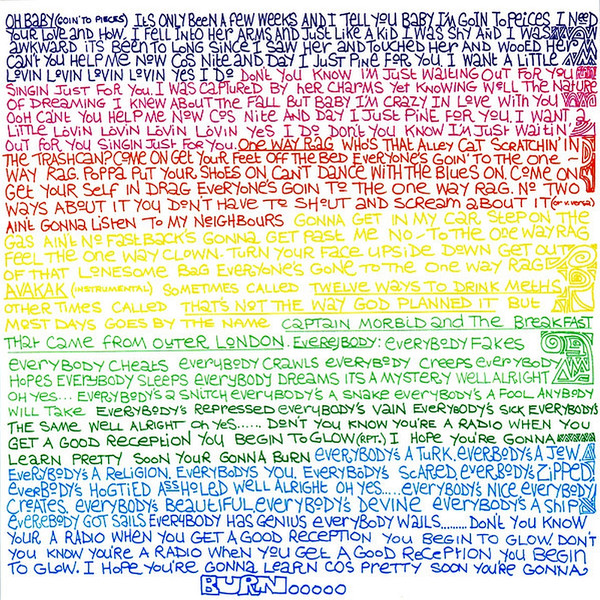 OH BABY (GOIN' TO PIECES) ITS ONLY BEEN A FEW WEEKS AND I TELL YOU BABY I'M GOIN TO PEICES I NEED
YOUR LOVE AND HOW. I FELL INTO HER ARMS AND JUST LIKE A KID I WAS SHY AND I WAS
AWKWARD ITS BEEN TO LONG SINCE I SAW HER AND TOUCHED HER AND WOOED HER
CAN'T YOU HELP ME NOW COS NITE AND DAY I JUST PINE FOR YOU. I WANT A LITTLE
LOVIN LOVIN LOVIN LOVIN YES I DO DON'T YOU KNOW I'M JUST WAITING OUT FOR YOU
SINGIN JUST FOR YOU. I WAS CAPTURED BY HER CHARMS YET KNOWING WELL THE NATURE
OF DREAMING I KNEW ABOUT THE FALL BUT BABY I'M CRAZY IN LOVE WITH YOU
OOH CANT YOU HELP ME NOW COS NITE AND DAY I JUST PINE FOR YOU. I WANT A
LITTLE LOVIN LOVIN LOVIN LOVIN YES I DO DON'T YOU KNOW I'M JUST WAITIN'
OUT FOR YOU SINGIN JUST FOR YOU. ONE WAY RAG WHO'S THAT ALLEY CAT SCRATCHIN' IN
THE TRASHCAN? COME ON GET YOUR FEET OFF THE BED EVERYONE'S GOIN' TO THE ONE ~
WAY RAG. POPPA PUT YOUR SHOES ON CAN'T DANCE WITH THE BLUES ON. COME ON
GET YOUR SELF IN DRAG EVERYONE'S GOIN TO THE ONE WAY RAG. NO TWO
WAYS ABOUT IT YOU DON'T HAVE TO SHOUT AND SCREAM ABOUT IT (OR V. VERSA)
AIN'T GONNA LISTEN TO MY NEIGHBOURS GONNA GET IN MY CAR STEP ON THE
GAS AIN'T NO FASTBACK'S GONNA GET PAST ME NO ~ TO THE ONE WAY RAG
FEEL THE ONE WAY CLOWN. TURN YOUR FACE UPSIDE DOWN GET OUT
OF THAT LONESOME BAG EVERYONE'S GONE TO THE ONE WAY RAG
AVAKAK (INSTRUMENTAL) SOMETIMES CALLED TWELVE WAYS TO DRINK METHS
OTHER TIMES CALLED THAT'S NOT THE WAY GOD PLANNED IT BUT
MOST DAYS GOES BY THE NAME CAPTAIN MORBID AND THE BREAKFAST
THAT CAME FROM OUTER LONDON. EVEREBODY: EVERYBODY FAKES
EVERYBODY CHEATS EVERYBODY CRAWLS EVERYBODY CREEPS EVERYBODY
HOPES EVERYBODY SLEEPS EVERYBODY DREAMS ITS A MYSTERY WELL ALRIGHT
OH YES... EVERYBODY'S A SNITCH EVERYBODY'S A SNAKE EVERYBODY'S A FOOL ANYBODY
WILL TAKE EVERYBODY'S REPRESSED EVERYBODY'S VAIN EVERYBODY'S SICK EVERYBODY'S
THE SAME WELL ALRIGHT OH YES...... DON'T YOU KNOW YOU'RE A RADIO WHEN YOU
GET A GOOD RECEPTION YOU BEGIN TO GLOW (RPT.) I HOPE YOU'RE GONNA
LEARN PRETTY SOON YOUR GONNA BURN EVERYBODY'S A TURK, EVERBODY'S A JEW,
EVERYBODY'S A RELIGION, EVERYBODYS YOU, EVERYBODY'S SCARED, EVERBODY'S ZIPPED,
EVERBODY'S HOGTIED ASSHOLED WELL ALRIGHT OH YES..... EVERYBODY'S NICE EVERYBODY
CREATES, EVERYBODY'S BEAUTIFUL, EVERYBODY'S DEVINE EVERYBODY'S A SHIP
EVEREBODY GOT SAILS EVERYBODY HAS GENIUS EVERYBODY WAILS........ DON'T YOU KNOW
YOUR A RADIO WHEN YOU GET A GOOD RECEPTION YOU BEGIN TO GLOW. DON'T
YOU KNOW YOU'RE A RADIO WHEN YOU GET A GOOD RECEPTION YOU BEGIN
TO GLOW. I HOPE YOU'RE GONNA LEARN COS PRETTY SOON YOU'RE GONNA
BURN○○○○○